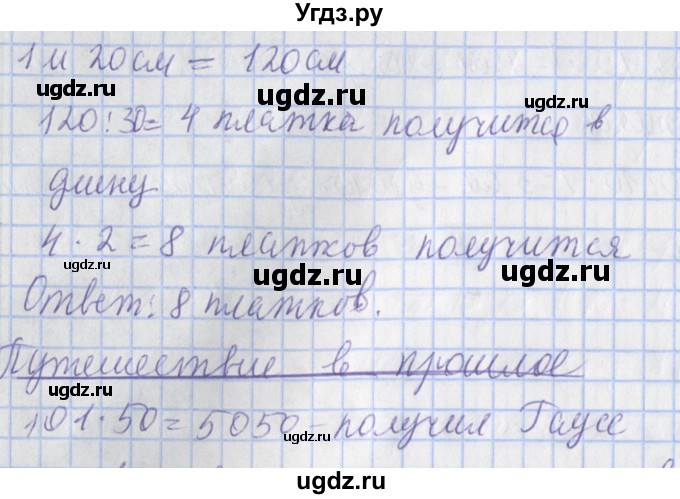 Угдз.ру
1 м 20 см = 120 см
120:30= 4 платка получится в
длину
4 · 2 = 8 платков получится
Ответ: 8 платков.
Путешествие в прошлое
101·50=5050-получил Гаусс
ugdz.ru
ugdz.ru
ugdz.ru
ugdz.ru
ugdz.ru
ugdz.ru
ugdz.ru
ugdz.ru
ugdz.ru
ugdz.ru
ugdz.ru
ugdz.ru